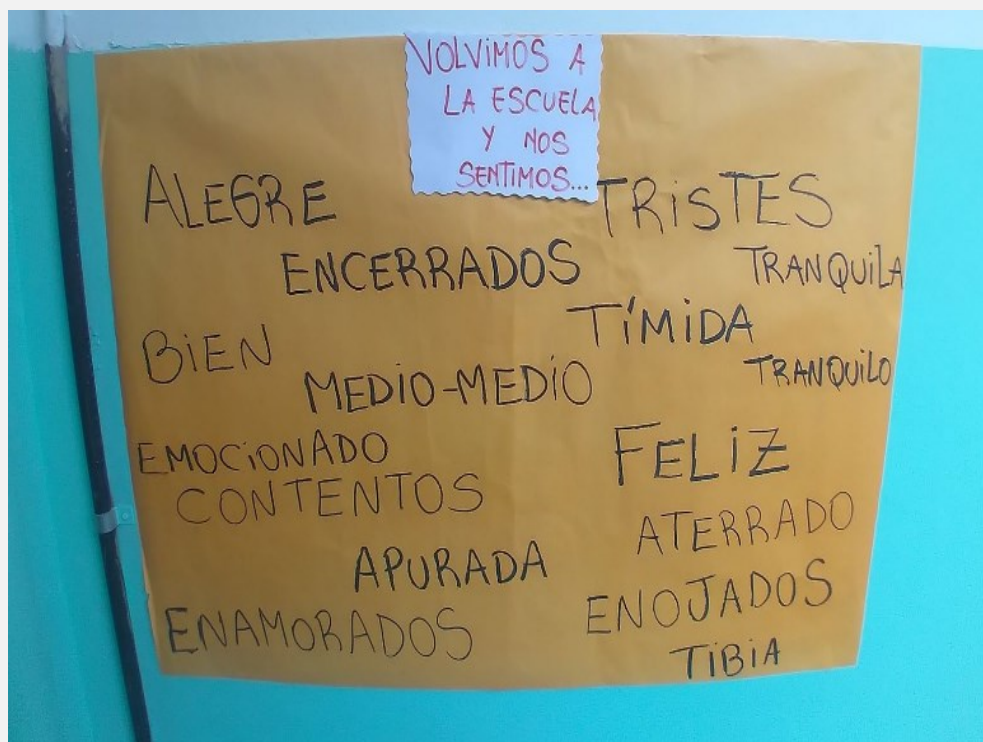 VOLVIMOS A
LA ESCUELA
Y NOS
SENTIMOS...
ALEGRE
TRISTES
ENCERRADOS
TRANQUILA
TÍMIDA
BIEN
MEDIO-MEDIO
TRANQUILO
EMOCIONADO
FELIZ
CONTENTOS
ATERRADO
APURADA
ENOJADOS
ENAMORADOS
TIBIA